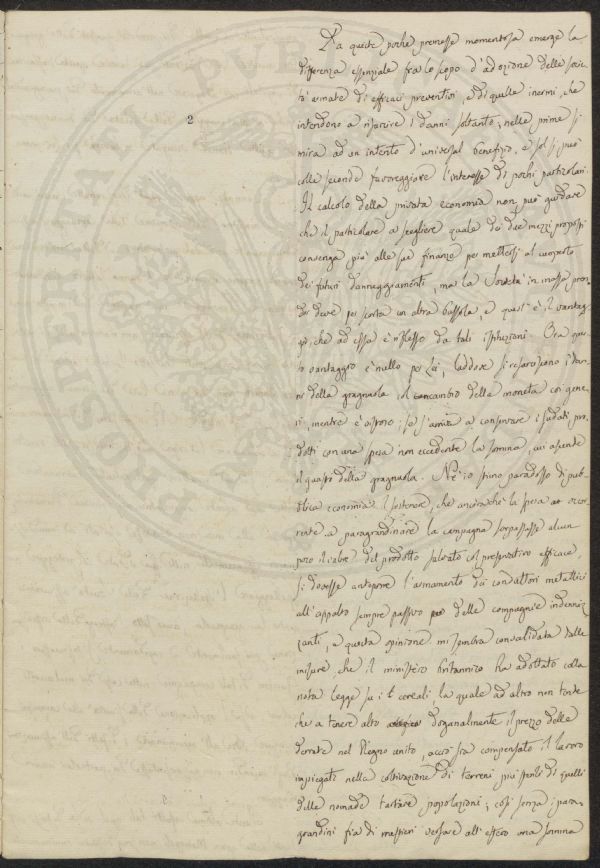 2
Da queste poche premesse momentosa emerge la
differenza essenziale fra lo scopo d'adozione delle socie
tà armate di efficaci preventivi, e di quelle inermi, che
intendono a risarcire i danni soltanto; nelle prime si
mira ad un intento d'universal benefizio, e sol si può
colle seconde favoreggiare l'interesse di pochi particolari.
Il calcolo della privata economia non può guidare
che il particolare a scegliere quale dei due mezzi proposti
convenga più alle sue finanze per mettersi al coperto
dei futuri danneggiamenti, ma la Società in massa pren
der deve per scorta un altra bussola, e quest'è il vantag
gio, che ad essa è riflesso da tali istituzioni. Ora que
sto vantaggio è nullo per lei, laddove si risarciscono i dan
ni della gragnuola col concambio della moneta coi gene
ri, mentre è vistoso; se s'arriva a conservare i sudati pro
dotti con una spesa non eccedente la somma, cui ascende
il guasto della gragnuola. Nè io stimo paradosso di pub
blica economia il sostenere, che ancora chè la spesa occor
rente a paragrandinare la campagna sorpassasse alcun
poco il valore del prodotto salvato col preservativo efficace,
si dovesse anteporre l'armamento dei conduttori metallici
all'appalto sempre passivo delle compagnie indenniz
zanti, e questa opinione mi sembra convalidata dalle
misure, che il ministero britannico ha adottato colla
nota legge su i cereali la quale ad altro non tende
che a tenere alto doganalmente il prezzo delle
derrate nel Regno unito, acciò sia compensato il lavoro
impiegato nella coltivazione di terreni più sterili di quelli
delle nomade tartare popolazioni; così senza i para
grandini fia di mestieri versare all'estero una somma